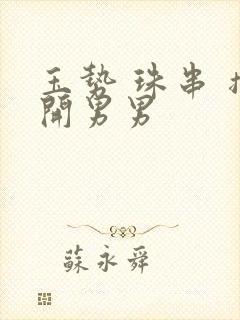 玉勢 珠串 扌
開男男
蘇永舜